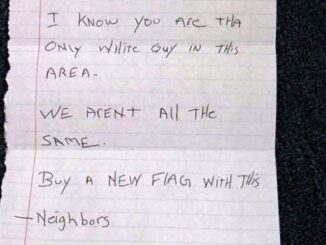 I KNOW YOU ARE THA
ONLY WHITE GUY IN THIS
AREA.
WE ARENT All THE
SAME.
BUY A NEW FlAG WITH THIS
—Neighbors